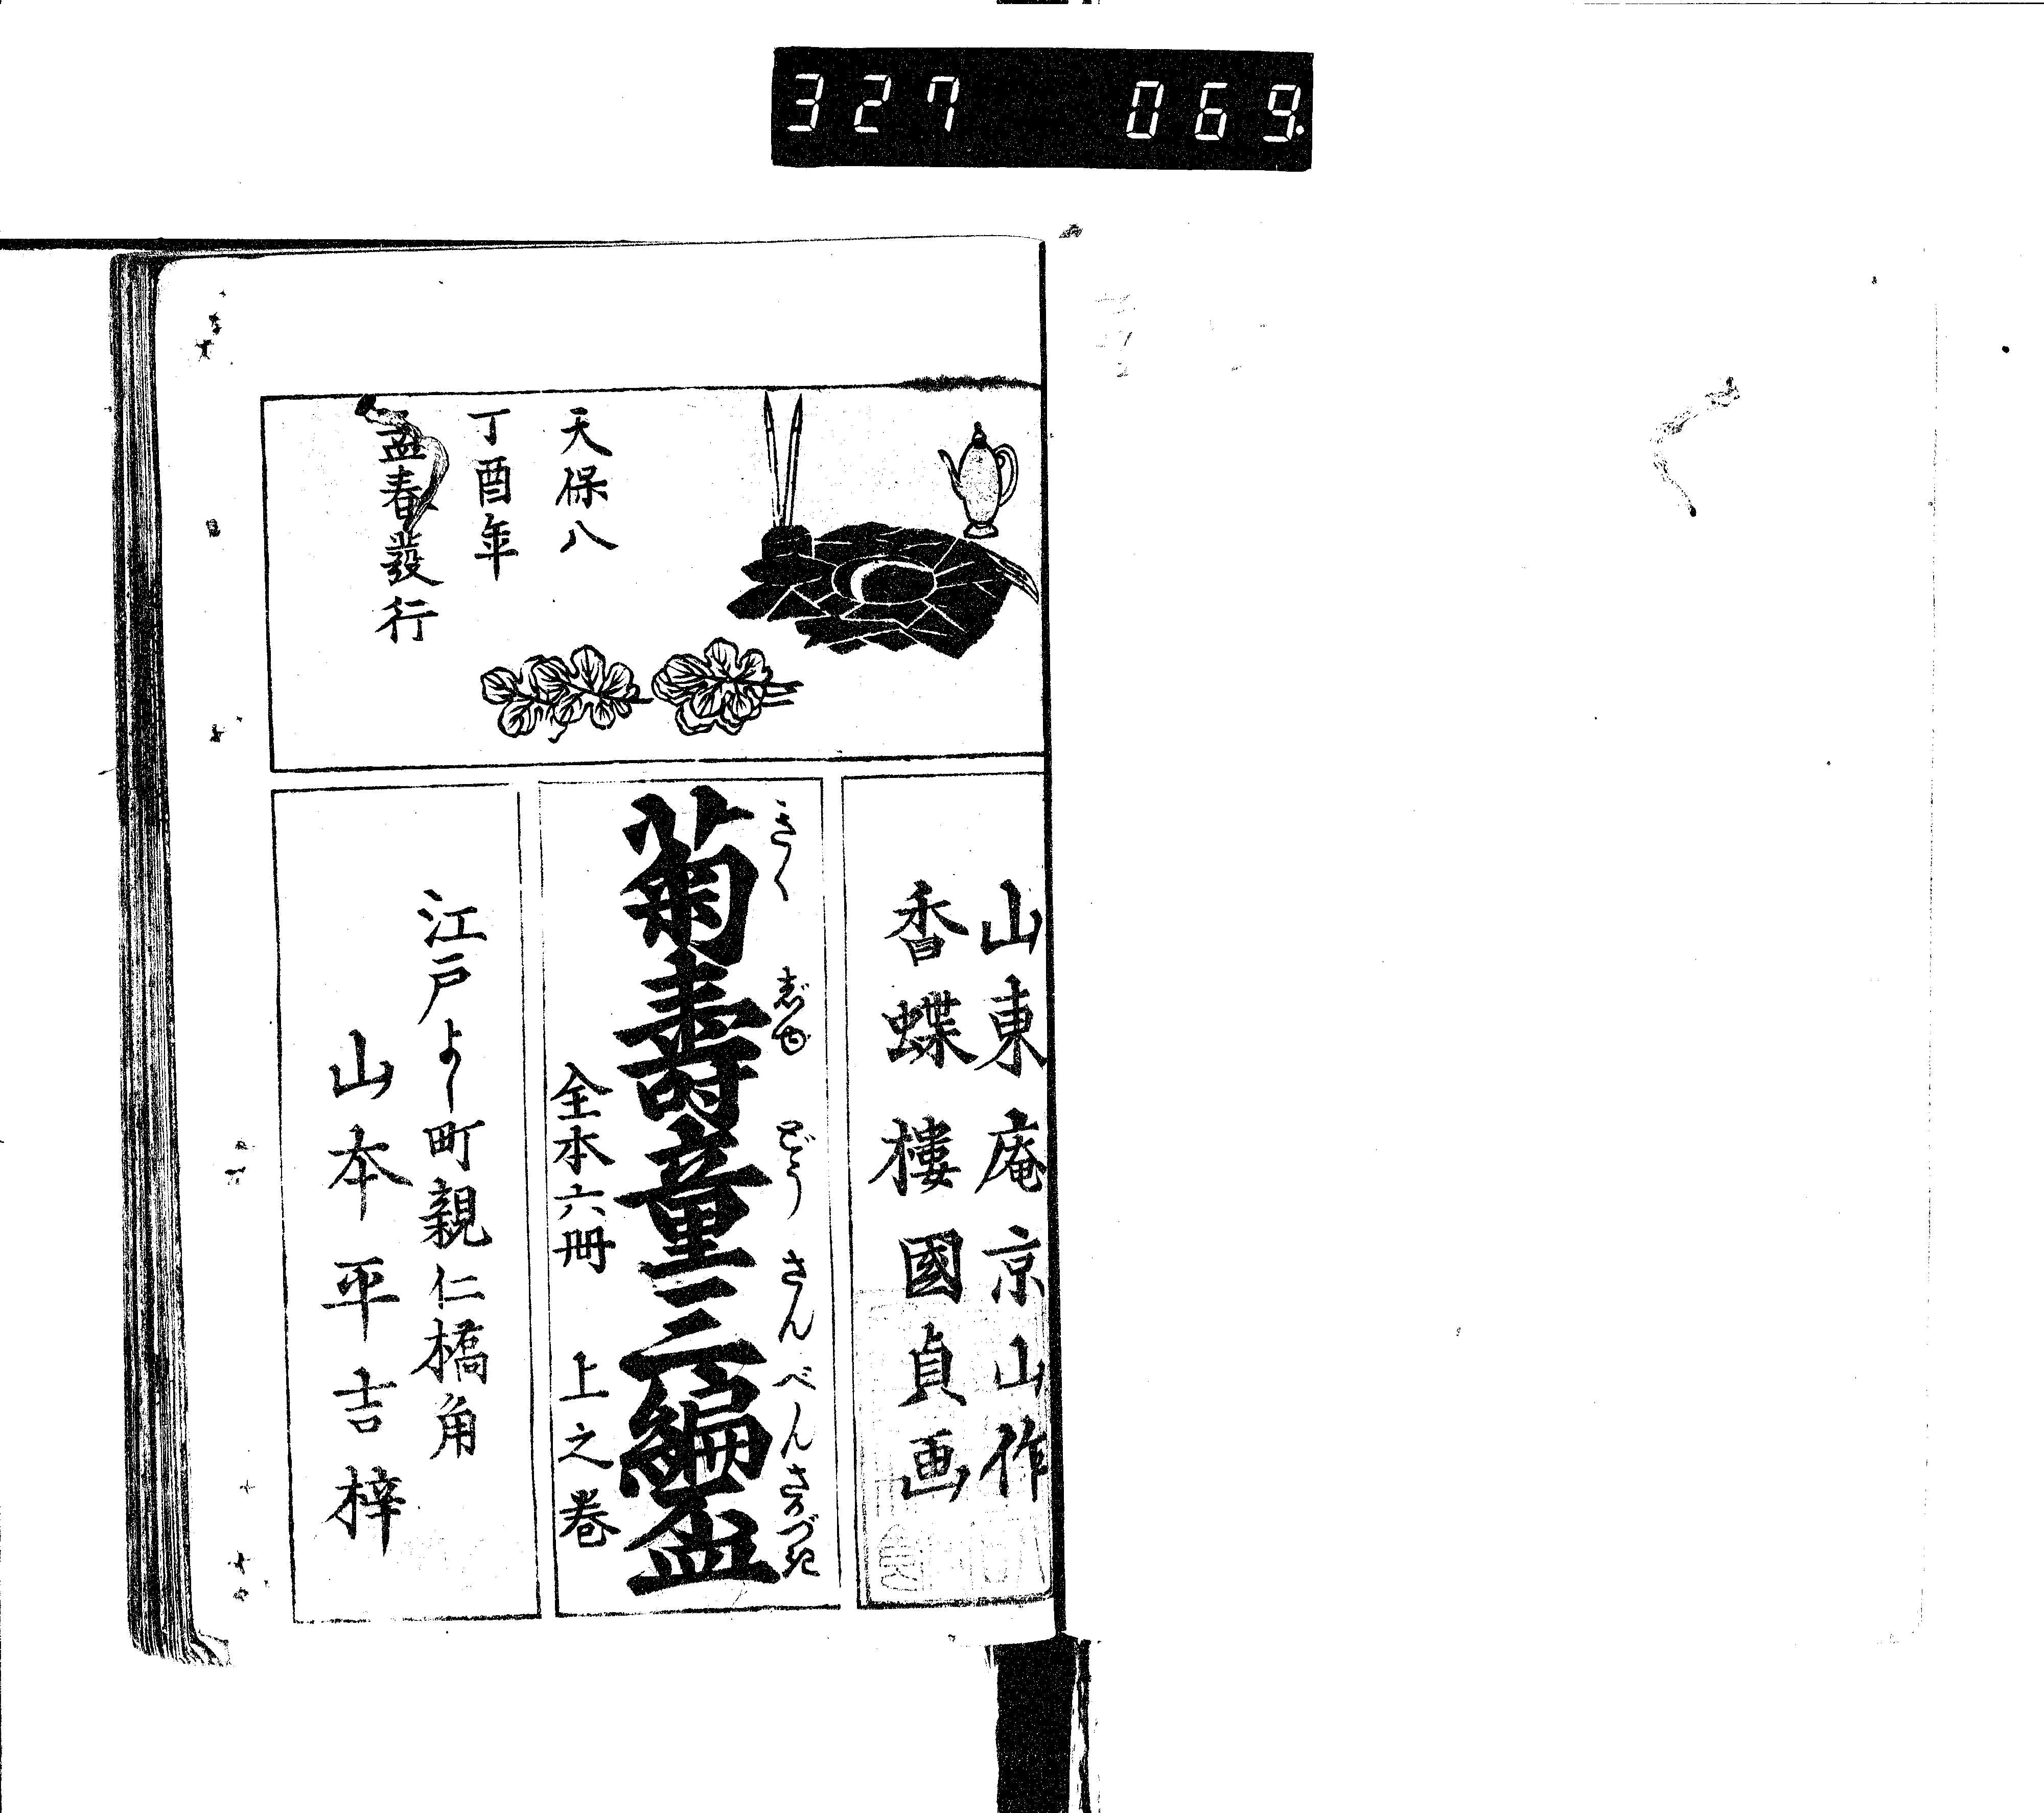 327 069
天保八
丁酉年
孟春發行
山東庵京山作
香蝶樓國貞画
きく じゆ どう さん べん さかづき
菊壽童三編盃
全本六冊 上之巻
江戸よし町親仁橋角
山本平吉梓